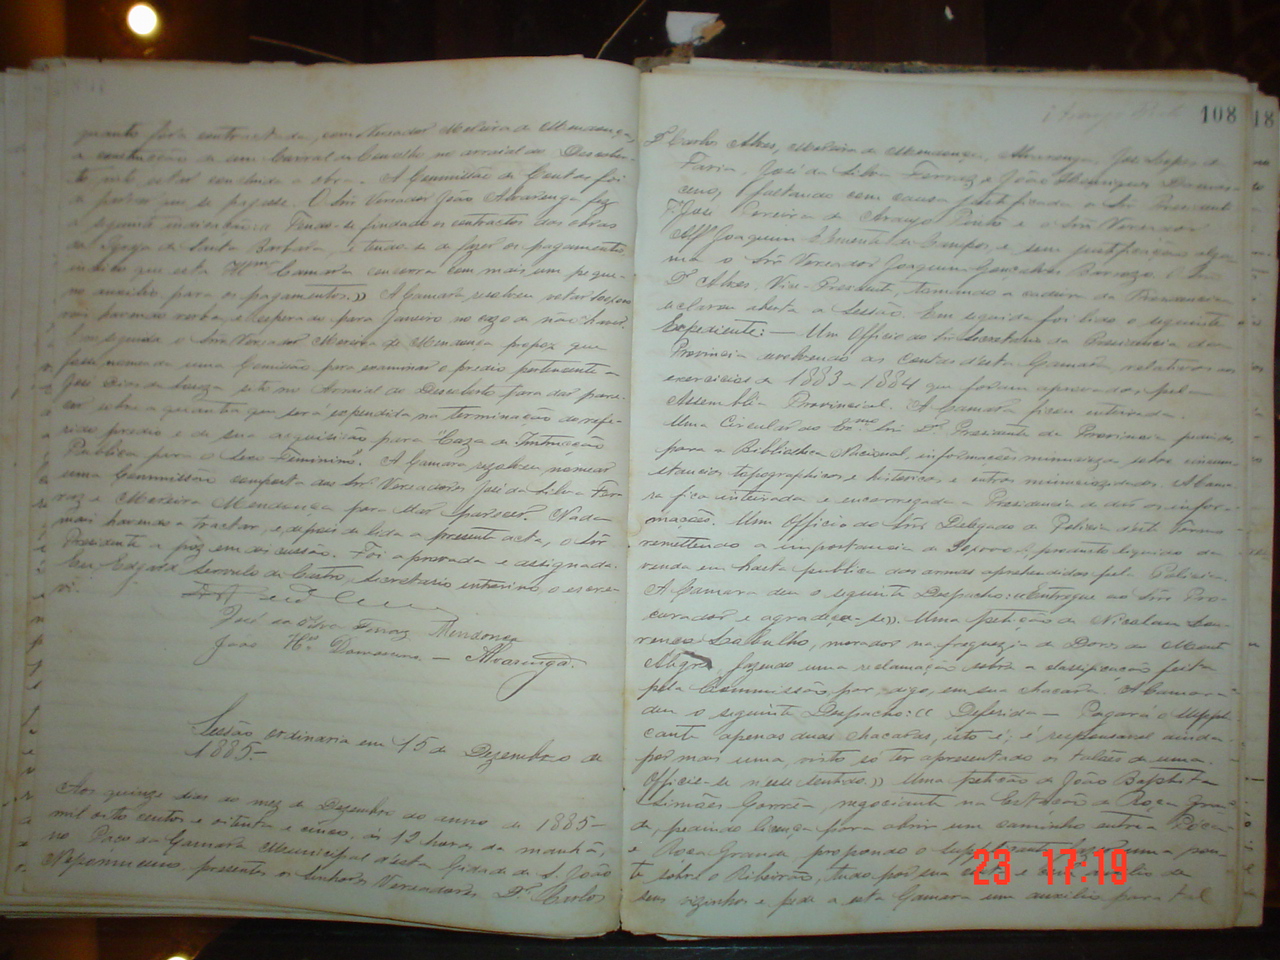 quanto fora contractada, com o Vereador Moreira de Mendonça,
a construcção de um Curral do Concelho no arraial do Descober-
to, visto estar concluida a obra. A Commissão de Contas foi
de parecer que se pagasse. O Snr Vereador João Alvarenga fez
a seguinte indicação: Tendo-se findado os contractos das obras
da Igreja de Santa Barbara, e tendo-se de fazer os pagamentos,
indico que esta Ill.ma Camara concorra com mais um peque-
no auxilio para os pagamentos.)) A Camara resolveu votar
havendo verba, e esperar para Janeiro no cazo de não haver.
Em seguida o Snr Vereador Moreira de Mendonça propoz que
fosse nomeada uma Comissão para examinar o predio pertencente a
José Dias de Souza sito no Arraial do Descoberto para dar pare-
cer sobre a quantia que sera expendida na terminação do refe-
rido predio e de sua acquisição para Caza de Instrucção
Publica para o sexo Feminino. A Camara resolveu nomear
uma Commissão composta dos Snrs Vereadores José da Silva Fer-
raz e Moreira Mendonça para dar parecer. Nada
mais havendo a tractar, e depois de lida a presente acta, o Snr
Presidente a pôz em discussão. Foi approvada e assignada.
Eu Edgard Servulo de Castro, Secretario interino, o escre-
vi.
José da Silva Ferraz Mendonça
João H.es Damasceno — Alvarenga
Sessão ordinaria em 15 de Dezembro de
1885.—
Aos quinze dias do mez de Dezembro do anno de 1885—
mil oito centos e oitenta e cinco, ás 12 horas da manhã,
no Paço da Camara Municipal d'esta Cidade de S. João
Nepomuceno, presentes os Senhores Vereadores Dr. Carlos
108
18
Dr Carlos Alves, Moreira de Mendonça, Alvarenga, José Lopes de
Faria, José da Silva Ferraz e João Henriques Damas-
ceno, faltando com causa justificada o Snr Presidente
Dr José Pereira de Araujo Pinto e o Snr Vereador
Alf. Joaquim Pimenta de Campos, e sem justificação algu-
ma o Snr Vereador Joaquim Gonçalves Barrozo. O Snr
Dr Alves, Vice-Presidente, tomando a cadeira da Presidencia
declarou aberta a Sessão. Em seguida foi lido o seguinte
Expediente: — Um Officio do Snr Secretario da Presidencia da
Provincia devolvendo as contas d'esta Camara, relativas aos
exercicios de 1883 a 1884 que foram aprovadas pela
Assembléa Provincial. A Camara ficou enteirada.
Uma Circular do Ex.mo Snr Dr. Presidente da Provincia pedindo
para a Bibliotheca Nacional, informações minuciozas sobre circum-
stancias topographicas e historicas e outras minuciozidades. A Cama-
ra fica inteirada e encarregada a Presidencia de dar as infor-
mações. Um Officio do Snr Delegado de Policia d'este Termo
remettendo a importancia de producto liquido da
venda em hasta publica das armas aprehendidas pela Policia.
A Camara deu o seguinte Despacho: "Entregue ao Snr Pro-
curador e agradeça-se)). Uma petição de Nicolau Lou-
renço, morador na freguezia de Dores do Monte
Alegre, fazendo uma reclamação sobre a classificação feita
pela Commissão, por, digo, em sua chacara. A Camara
deu o seguinte Despacho: (( Deferida — Pagará o Suppli-
cante apenas duas chacaras, isto é, é responsavel ainda
por mais uma, visto só ter apresentado os talões de uma.
Officie-se n'esse sentido.)) Uma petição de João Baptista
Simões Corrêa, negociante na Estação da Roça Gran-
de, pedindo licença para abrir um caminho entre a
e Roça Grande propondo o supplicante fazer uma pon-
te sobre o Ribeirão, tudo por sua custa e com auxilio de
seus vizinhos e pede a esta Camara um auxilio para tal
23 17:19